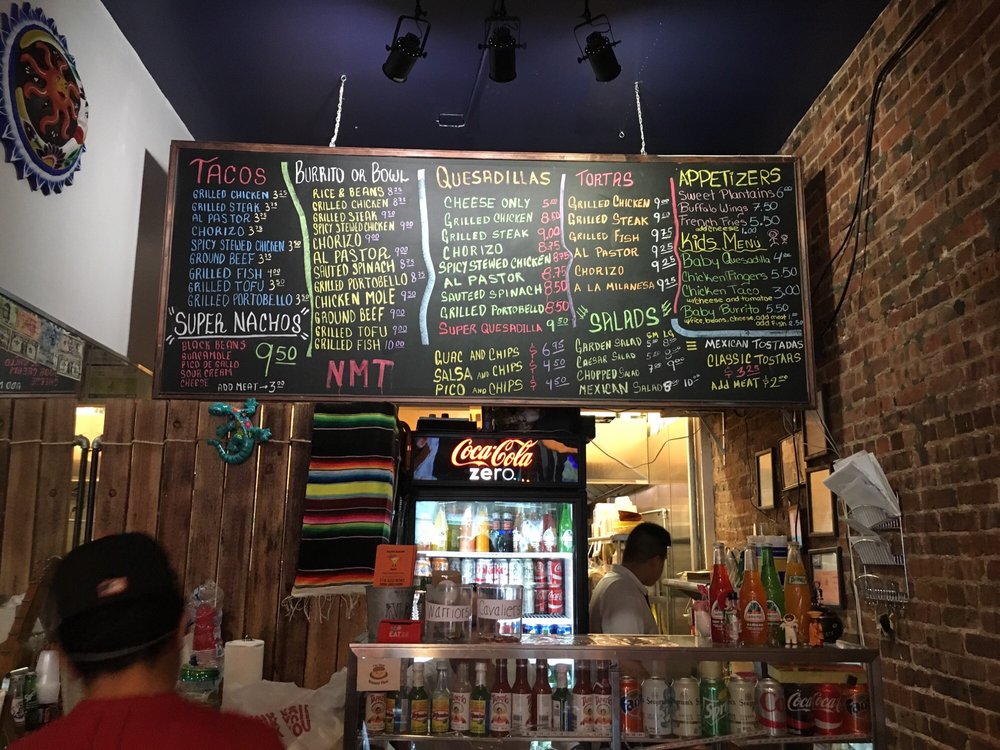 TACOS
GRILLED CHICKEN 3.25
GRILLED STEAK 3.75
AL PASTOR 3.75
CHORIZO 3.75
SPICY STEWED CHICKEN 3.50
GROUND BEEF 3.25
GRILLED FISH 4.00
GRILLED TOFU 3.50
GRILLED PORTOBELLO 3.50
"SUPER NACHOS"
BLACK BEANS
GUACAMOLE
PICO DE GALLO
SOUR CREAM
CHEESE
9.50
ADD MEAT → 3.00
BURRITO OR BOWL
RICE & BEANS 8.25
GRILLED CHICKEN 8.75
GRILLED STEAK 9.50
SPICY STEWED CHICKEN 9.00
CHORIZO 9.00
AL PASTOR 9.00
SAUTED SPINACH 8.75
GRILLED PORTOBELLO 8.75
CHICKEN MOLE 9.50
GROUND BEEF 9.00
GRILLED TOFU 9.00
GRILLED FISH 10.00
NMT
QUESADILLAS
CHEESE ONLY
GRILLED CHICKEN 8.50
GRILLED STEAK 9.00
CHORIZO 8.75
SPICY STEWED CHICKEN 8.75
AL PASTOR 8.75
SAUTEED SPINACH 8.50
GRILLED PORTOBELLO 8.50
SUPER QUESADILLA 9.50
GUAC AND CHIPS 6.95
SALSA AND CHIPS 4.50
PICO AND CHIPS 4.50
TORTAS
GRILLED CHICKEN 9.00
GRILLED STEAK 9.00
GRILLED FISH 9.25
AL PASTOR 9.25
CHORIZO 9.25
A LA MILANESA 9.25
"SALADS"
SM LG
GARDEN SALAD
CAESAR SALAD
CHOPPED SALAD 7.00 9.00
MEXICAN SALAD 8.00 10.00
APPETIZERS
Sweet Plantains 6.00
Buffalo Wings 7.50
French Fries 5.50
add cheese 1.00
Kids Menu
Baby Quesadilla 4.00
Chicken Fingers 5.50
Chicken Taco 3.00
w/cheese and tomatoe
Baby Burrito 5.50
w/rice, beans, cheese, add meat
add Fish 2.50
MEXICAN TOSTADAS
CLASSIC TOSTARS
$3.25
ADD MEAT $2.00
Coca-Cola
zero
Warriors
Cavaliers
THANK YOU
EATER
Fanta
Seagram's
Sprite
Coca-Cola